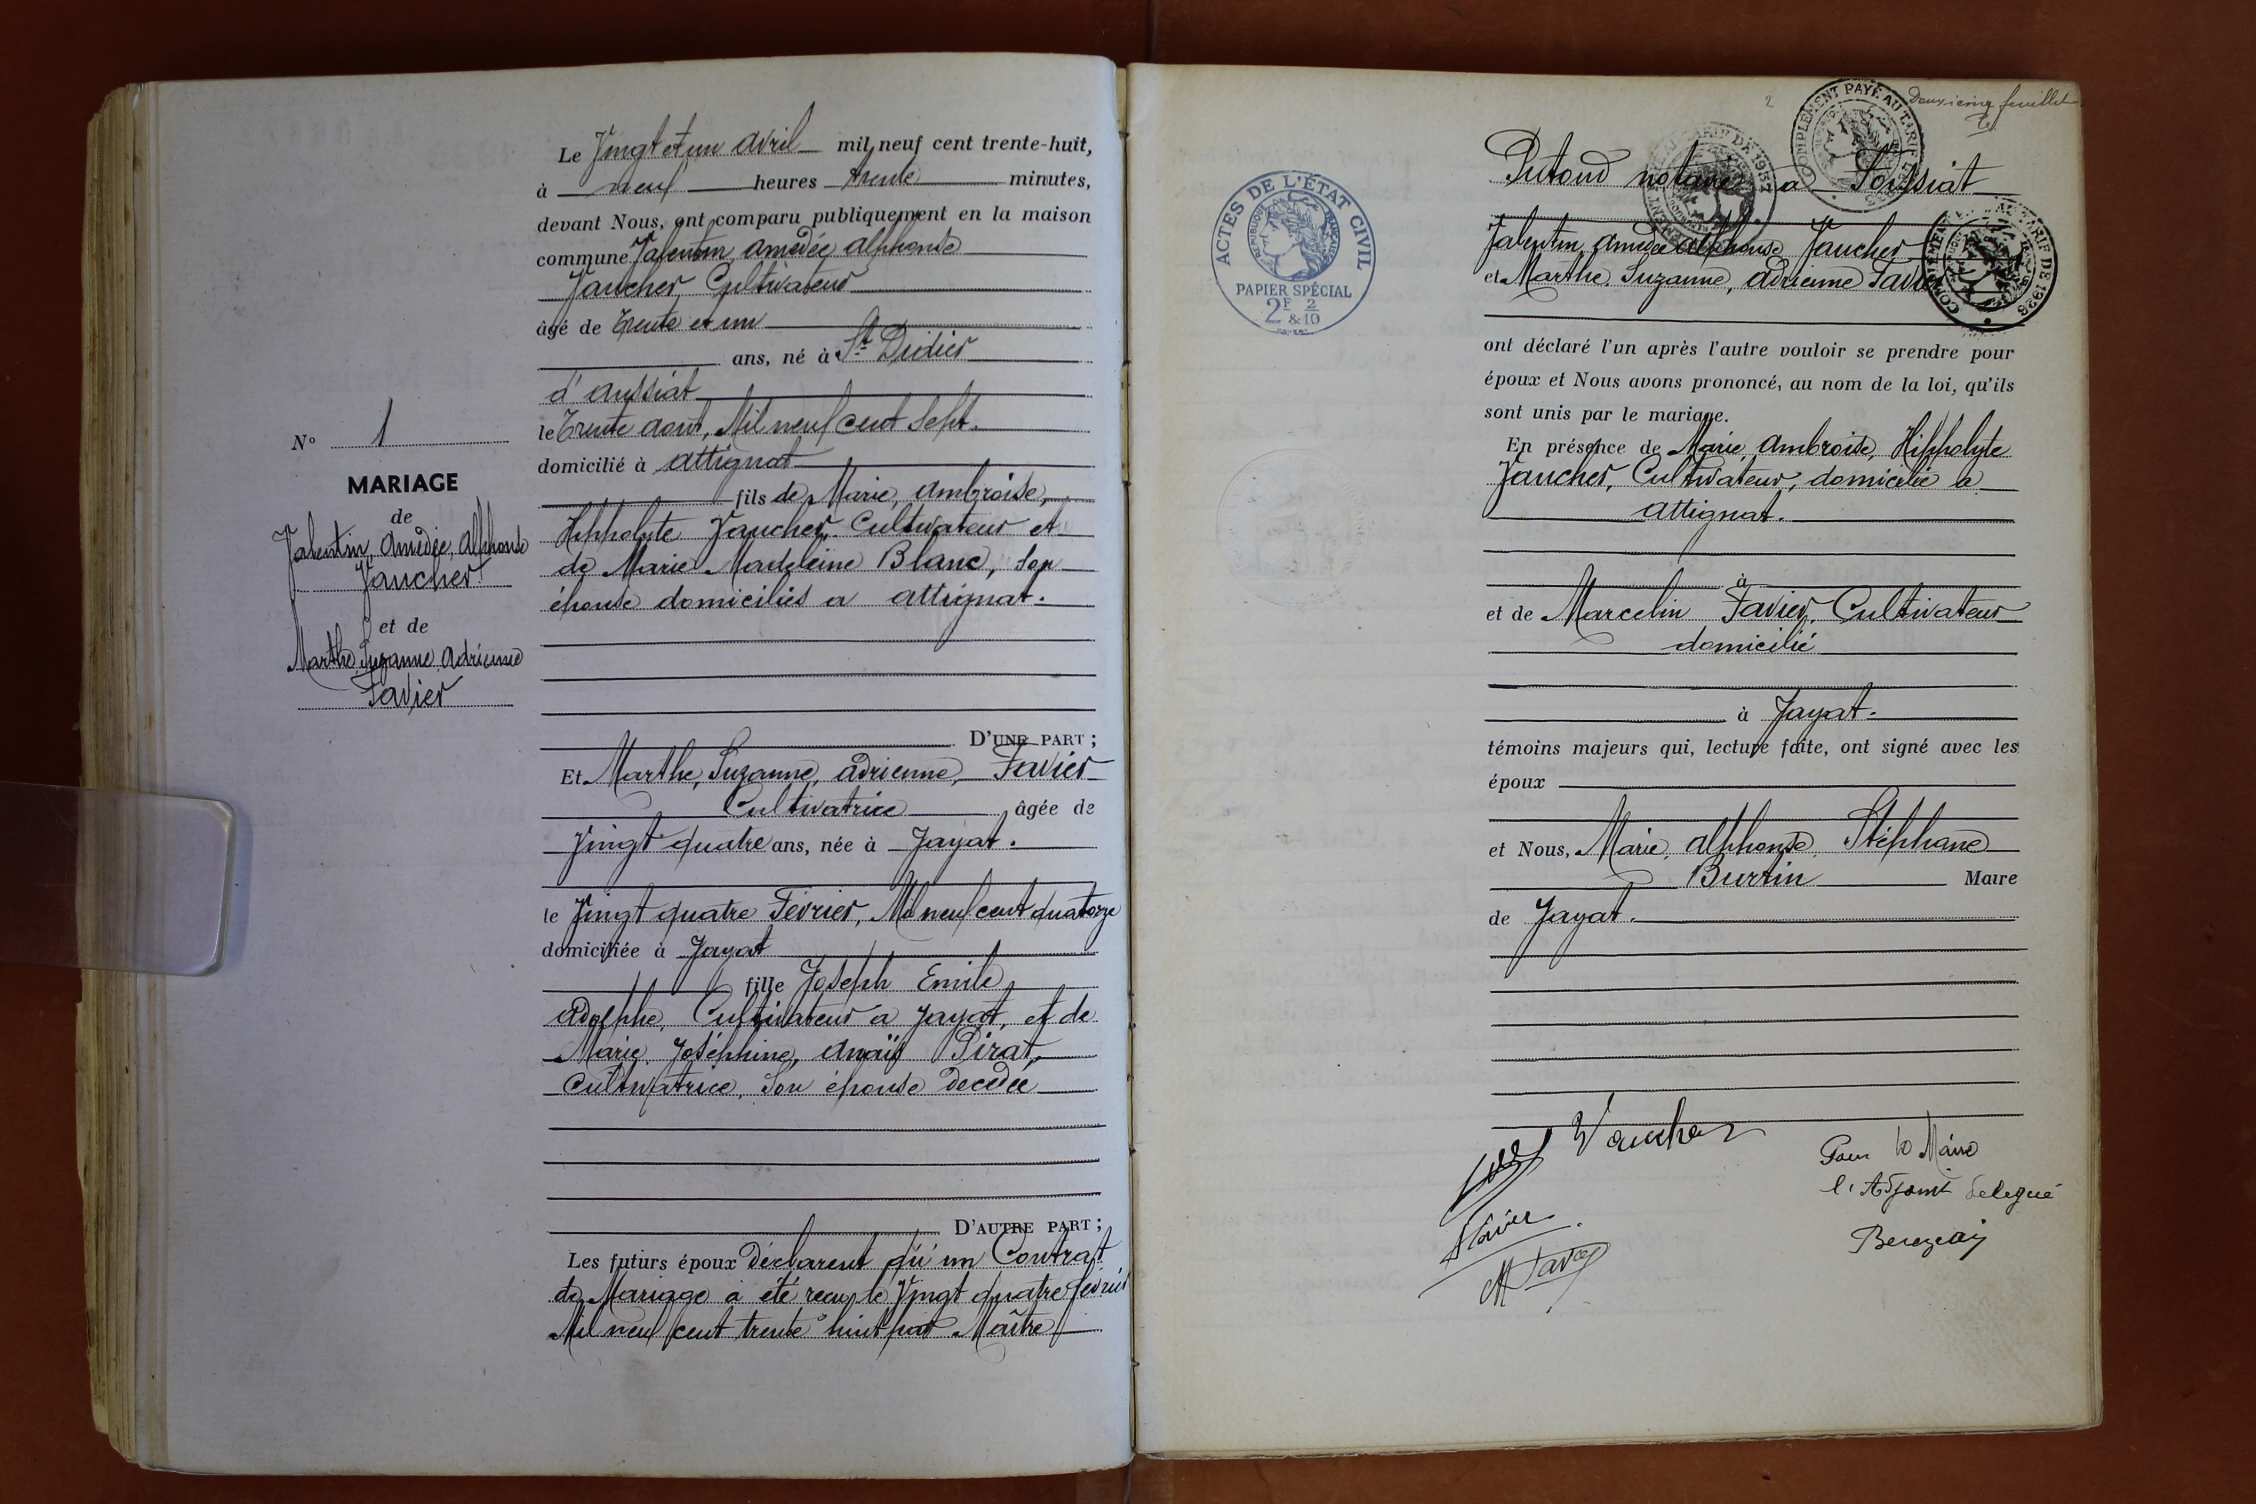 Le Vingt et un avril mil neuf cent trente-huit,
à neuf heures trente minutes,
devant Nous, ont comparu publiquement en la maison
commune Valentin, amédée, alphonse
Vaucher, Cultivateur
âgé de trente et un
ans, né à St Didier
d'aussiat
le trente aout, Mil neuf cent sept.
domicilié à attignat
fils de Marie, ambroise,
Hippolyte Vaucher, Cultivateur et
de Marie Madeleine Blanc, son
épouse domiciliés a attignat.
D'UNE PART ;
Et Marthe, Suzanne, adrienne, Favier
Cultivatrice âgée de
Vingt quatre ans, née à Jayat.
le Vingt quatre Février, Mil neuf cent quatorze
domiciliée à Jayat
fille Joseph Emile
adolphe, Cultivateur à Jayat, et de
Marie, Joséphine, anaïs Pirat,
Cultivatrice, son épouse decedée
D'AUTRE PART ;
Les futurs époux déclarent qu'un Contrat
de Mariage a été reçu le Vingt quatre février
Mil neuf cent trente huit par Maître
N° 1
MARIAGE
de
Valentin, amédée, alphonse
Vaucher
et de
Marthe Suzanne adrienne
Favier
2
Deuxième feuillet
COMPLÉMENT PAYÉ AU TARIF DE
TARIF DE 1937
COMPLÉMENT PAYÉ AU TARIF DE 1938
ACTES DE L'ÉTAT CIVIL
RÉPUBLIQUE FRANÇAISE
PAPIER SPÉCIAL
2F & 2/10
Putoud notaire a Foissiat
Valentin, amédée alphonse Vaucher
et Marthe, Suzanne, adrienne Favier
ont déclaré l'un après l'autre vouloir se prendre pour
époux et Nous avons prononcé, au nom de la loi, qu'ils
sont unis par le mariage.
En présence de Marie, ambroise, Hippolyte
Vaucher, Cultivateur, domicilié a
attignat.
à
et de Marcelin Favier, Cultivateur
domicilié
à Jayat.
témoins majeurs qui, lecture faite, ont signé avec les
époux
et Nous, Marie, alphonse, Stéphane
Burtin Maire
de Jayat.
Vaucher
Favier
M Favier
Pour le Maire
l'Adjoint delegué